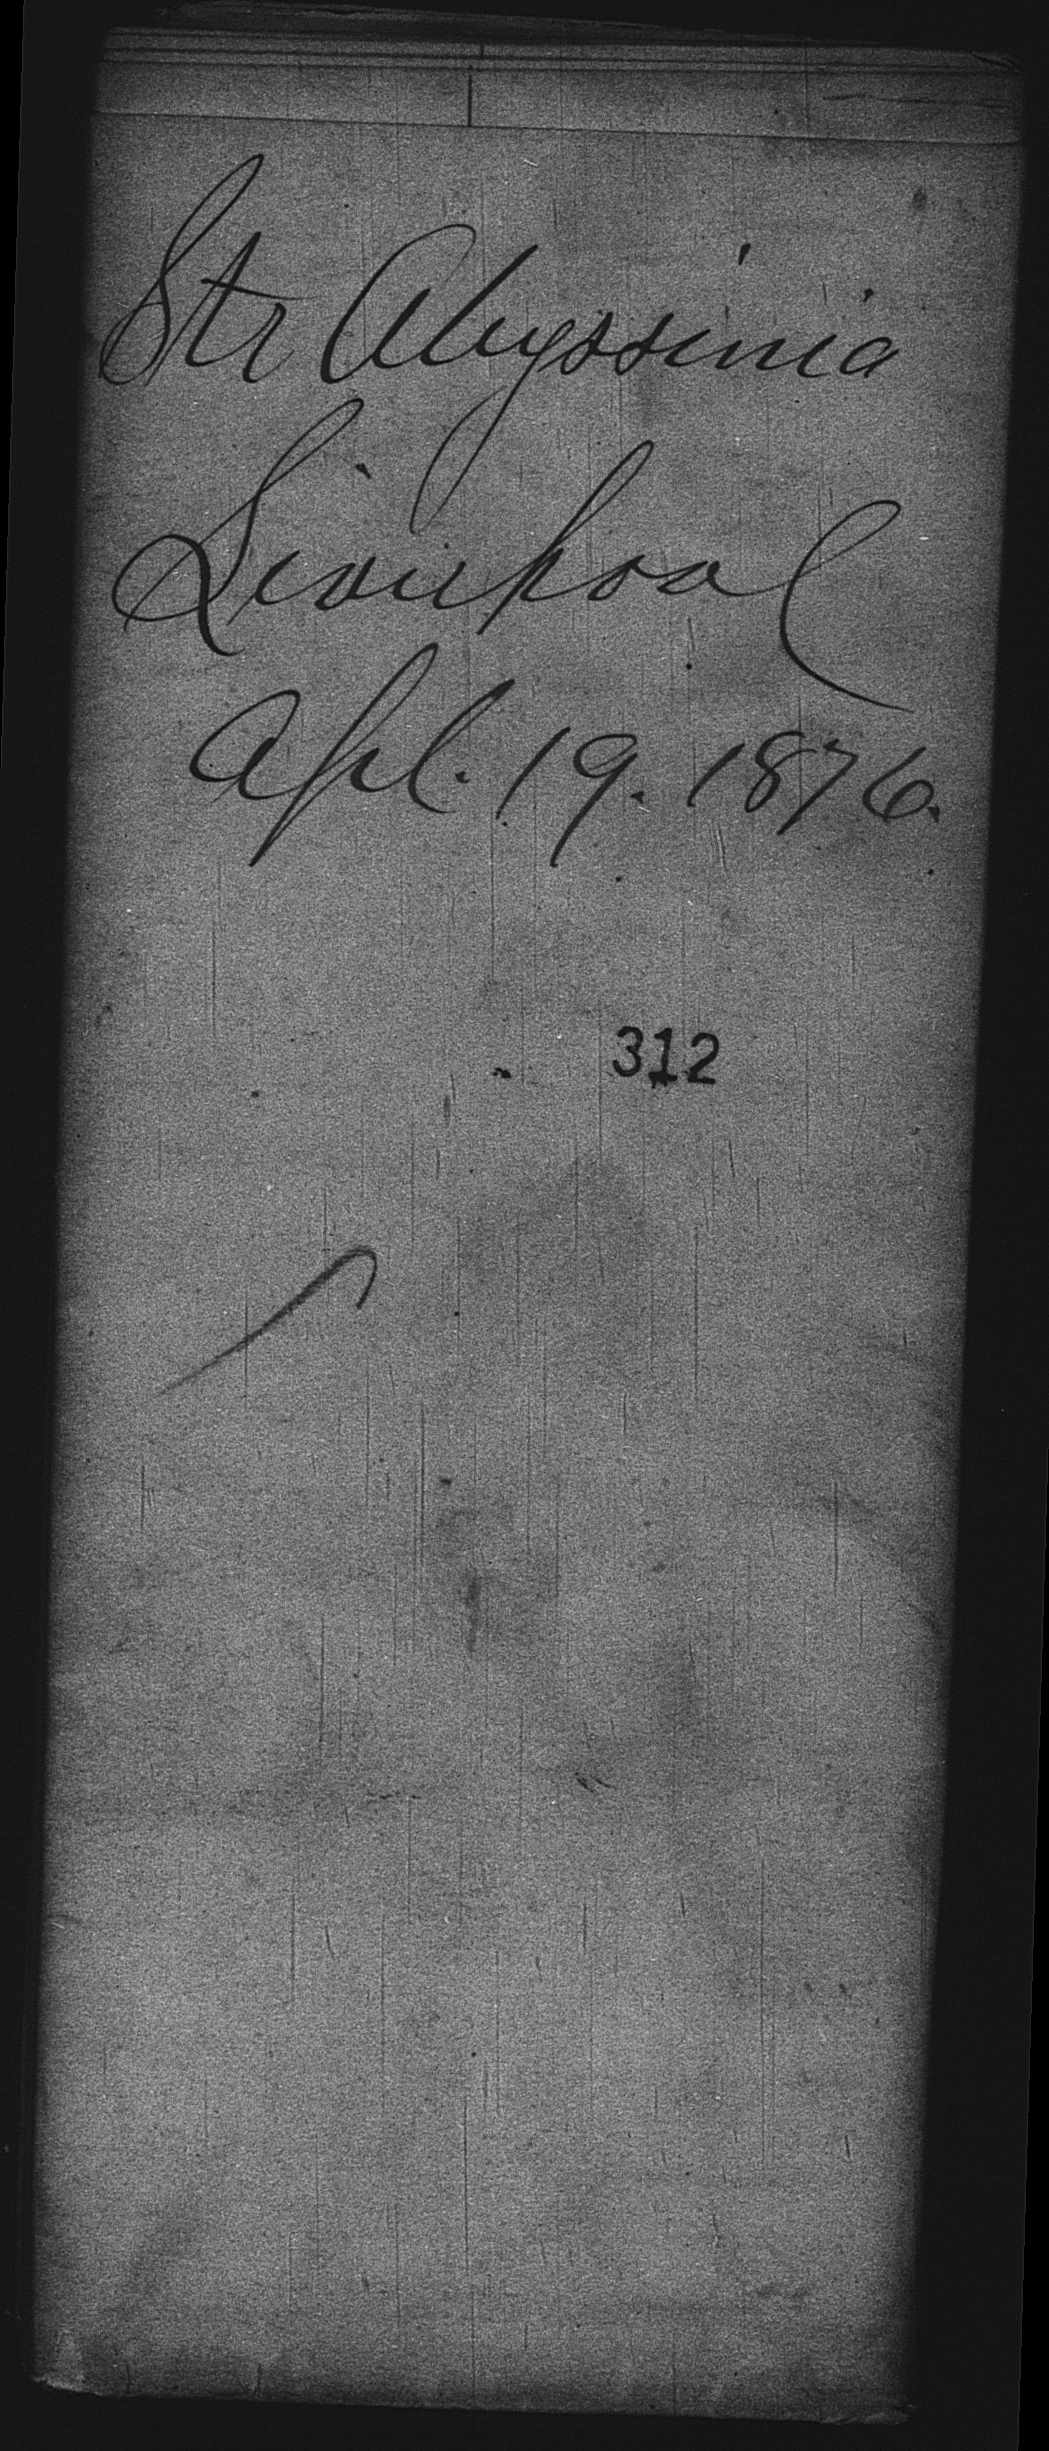 Str Abyssinia
Liverpool
Apl. 19. 1876.
312